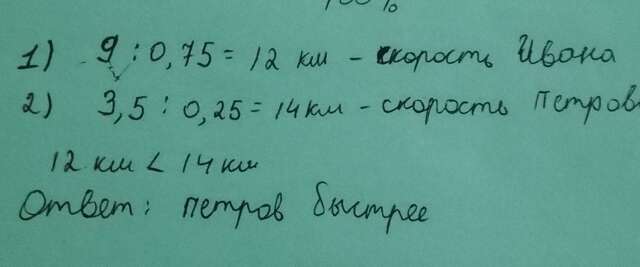 100%
1) 9 : 0,75 = 12 км - скорость Ивона
2) 3,5 : 0,25 = 14 км - скорость Петров
12 км < 14 км
Ответ: петров быстрее